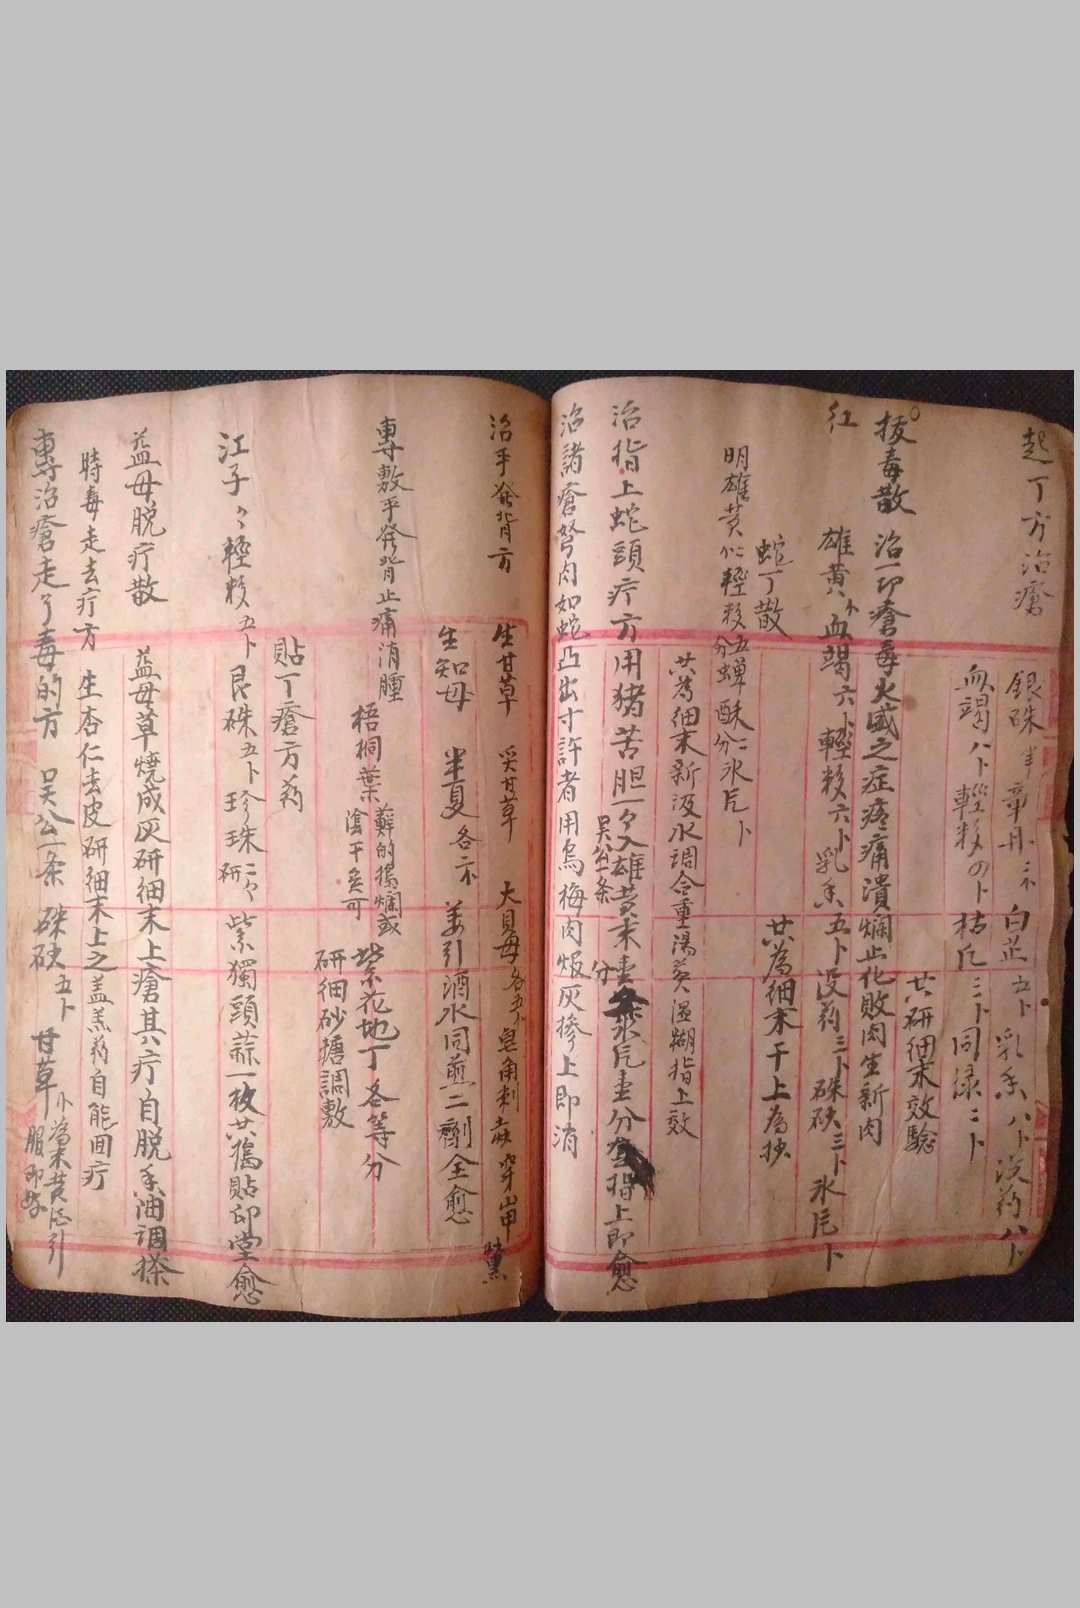 起丁方治瘡
銀硃 章丹 白芷五卜 乳香八卜 沒药八卜
血竭八卜 輕粉 枯凡三卜 同綠二卜
共研細末效驗
拔毒散 治一卯瘡毒火盛之症疼痛潰爛止化敗肉生新肉
紅 雄黃 血竭六卜 輕粉六卜 乳香五卜 沒药三卜 硃砂三卜 氷凡卜
共為細末干上為抄
蛇丁散
明雄黃 輕粉五分 蟬酥二分 氷凡卜
共為細末新汲水調合重湯煑溫糊指上效
治指上蛇頭疔方用猪苦胆一个入雄黃末壹分吴公一条氷凡壹分套指上即愈
治諸瘡弩肉如蛇凸出寸許者用烏梅肉煅灰摻上即消
治手發背方 生甘草 炙甘草 大貝母各五卜 皂角刺 穿山甲
生知母 半夏各 姜引酒水同煎二劑全愈
專敷手發背止痛消腫
梧桐葉 蘚的搗爛或
陰干炙可 紫花地丁各等分
研細砂搪調敷
貼丁瘡方药
江子 輕粉五卜 艮硃五卜 珍珠二个研 紫獨頭蒜一枚共搗貼卯堂愈
益母脱疔散
益母草燒成灰研細末上瘡其疔自脱香油調搽
時毒走去疔方 生杏仁去皮研細末上之盖羔药自能回疔
專治瘡走了毒的方 吴公一条 硃砂五卜 甘草 為末黃酒引
服即好